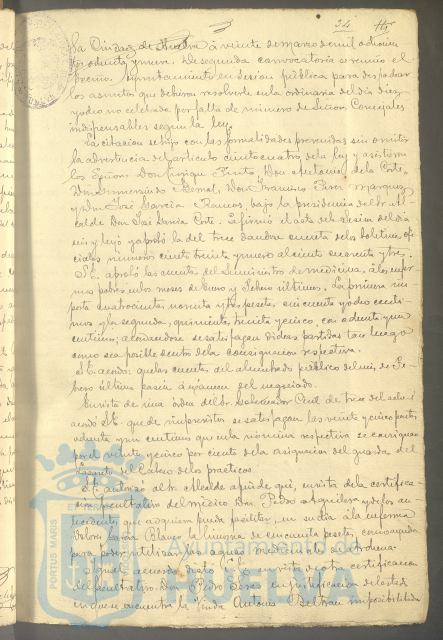 24
La Ciudad de Huelva á veinte de marzo de mil ochocien
tos ochenta y nueve. De segunda convocatoria se reunió el
Excmo. Ayuntamiento en sesion pública para despachar
los asuntos que debieron resolverse en la ordinaria del dia diez
y ocho no celebrada por falta de número de Señores Concejales
indispensables segun la ley.
La citacion se hizo con las formalidades prevenidas sin omitir
la advertencia del artículo ciento cuatro de la ley y asistieron
los Señores Don Enrique Prieto, Don de la Corte,
Don Bernal, Don Francisco Perez Marquez
y Don José García Ramos, bajo la presidencia del Sr. Al
calde Don José García Corti. Se firmó el acta de la sesion del dia
seis y leyó y aprobó la del trece dandose cuenta de los boletines ofi
ciales números ciento treinta y nueve al ciento cuarenta y tres.
S.E. aprobó las cuentas del suministro de medicinas á los enfer
mos pobres en los meses de Enero y Febrero últimos. La primera im
porta cuatrocientas noventa y tres pesetas, cincuenta y ocho centi
mos y la segunda, quinientas treinta y cinco, con ochenta y un
centimos; acordandose se satisfagan dichas partidas tan luego
como sea posible dentro de la consignacion respectiva.
S.E. acordó: que las cuentas del alumbrado público del mes de Fe
brero último pasen á exámen del negociado.
En vista de una órden del Sr. Gobernador Civil de trece del actual
acordó S.E. que de imprevistos se satisfagan las veinte y cinco pesetas
ochenta y un centimos que en la nómina respectiva se consignan
por el veinte y cinco por ciento de la asignacion del guarda del
Lazareto de de los practicos.
S.E. autorizó al Sr. Alcalde á fin de que, en vista de la certifica
cion facultativa del médico Don Pedro Seguilera y de los an
tecedentes que adquiera pueda facilitar, en su dia á la enferma
Dolores Garcia Blanco la limosna de cincuenta pesetas, como ayuda
para poder utilizar las aguas medicinales que se le ordenan.
Igual acuerdo dictó S.E. en vista de otra certificacion
del facultativo Don Pedro en justificacion del estado
en que se encuentra la viuda Antonia Beltran imposibilitada
PORTUS MARIS
Ayuntamiento de
HUELVA